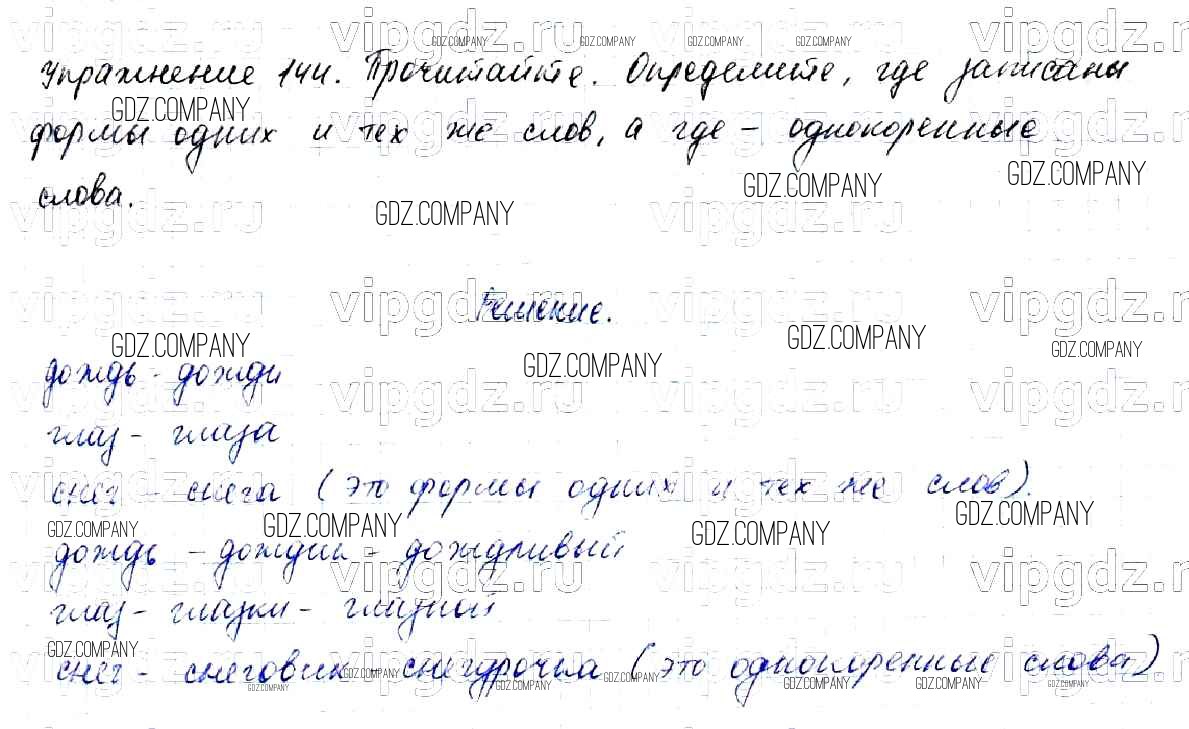 Упражнение 144. Прочитайте. Определите, где записаны
формы одних и тех же слов, а где – однокоренные
слова.
Решение.
дождь - дожди
глаз - глаза
снег - снега (это формы одних и тех же слов).
дождь - дождик - дождливый
глаз - глазки - глазной
снег - снеговик - снегурочка (это однокоренные слова).